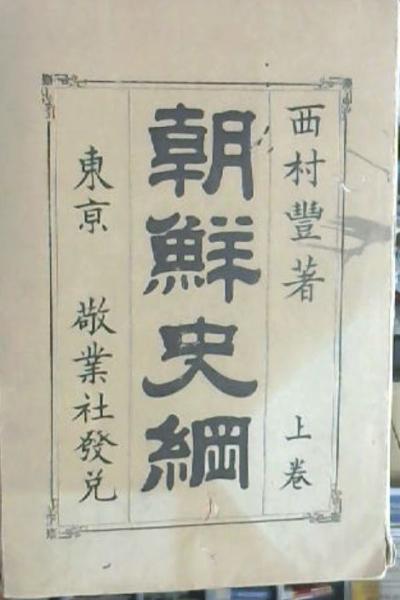 西村豐著 上卷
朝鮮史綱
東京 敬業社發兌